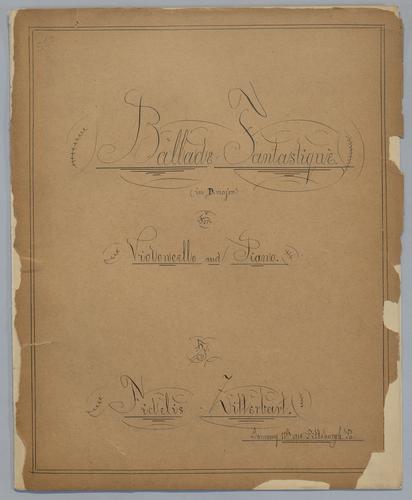 Ballade Fantastique.
(in D major)
for
Violoncello and Piano.
By
Fidelis Zitterbart.
Pittsburgh, Pa.